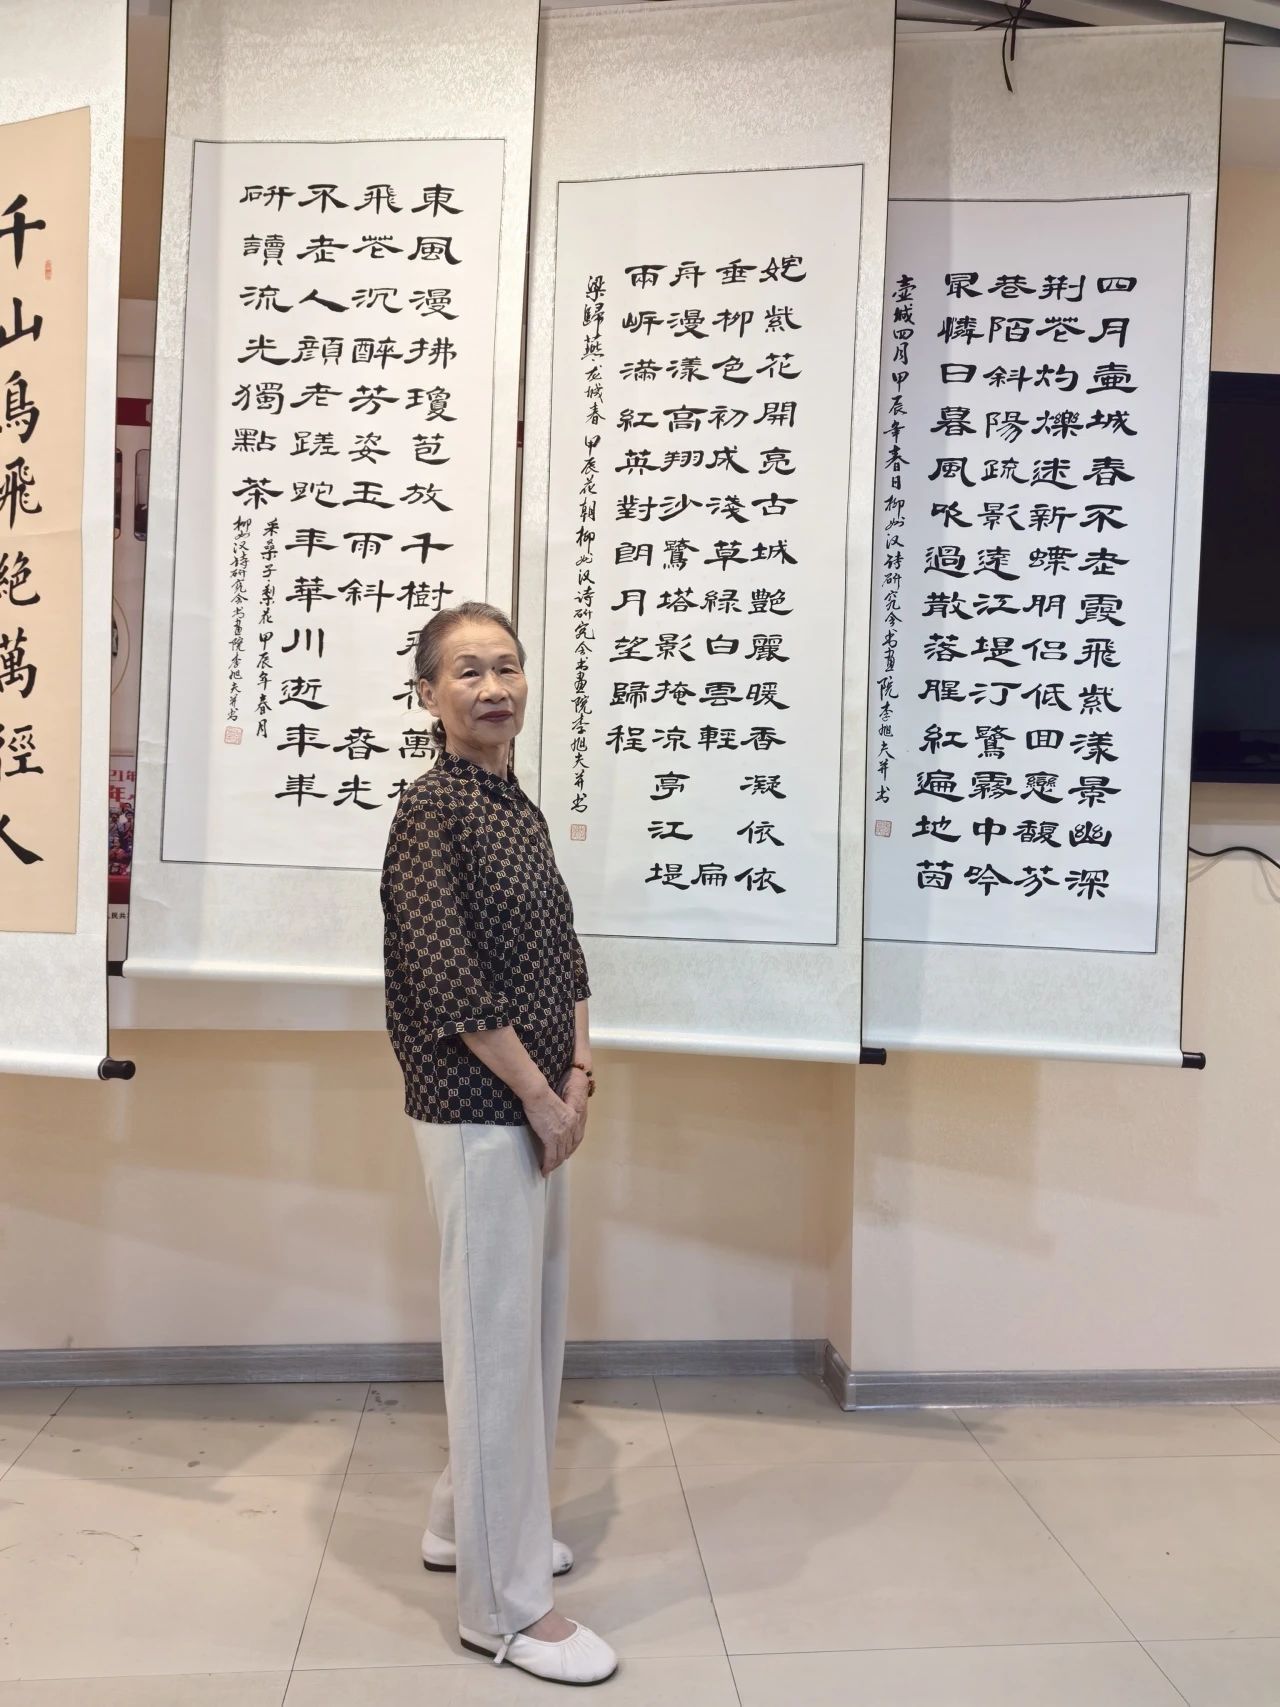 四月壷城春不走霞飛紫漾景幽深
荆花灼爍迷新蝶朋侣低回戀馥芬
巷陌斜陽疏影遠江堤汀鷺霧中吟
最憐日暮風吹過散落腥紅遍地茵
壶城四月甲辰年春日柳州汉诗研究会书画院李旭夫并书
姹紫花開亮古城艷麗暖香凝依依
垂柳色初成淺草緑白雲輕扁
舟漫漾高翔沙鷺塔影掩凉亭江堤
兩岍滿紅英對朗月望歸程
梁歸燕龙城春甲辰花朝柳州汉诗研究会书画院李旭夫并书
東風漫拂瓊苞放千樹花萬
飛花沉醉芳姿玉雨斜春光
不走人顔老蹉跎年華川逝年年
研讀流光獨點茶
采桑子·梨花甲辰年春月
柳州汉诗研究会书画院李旭夫并书
千山鳥飛絶萬徑人